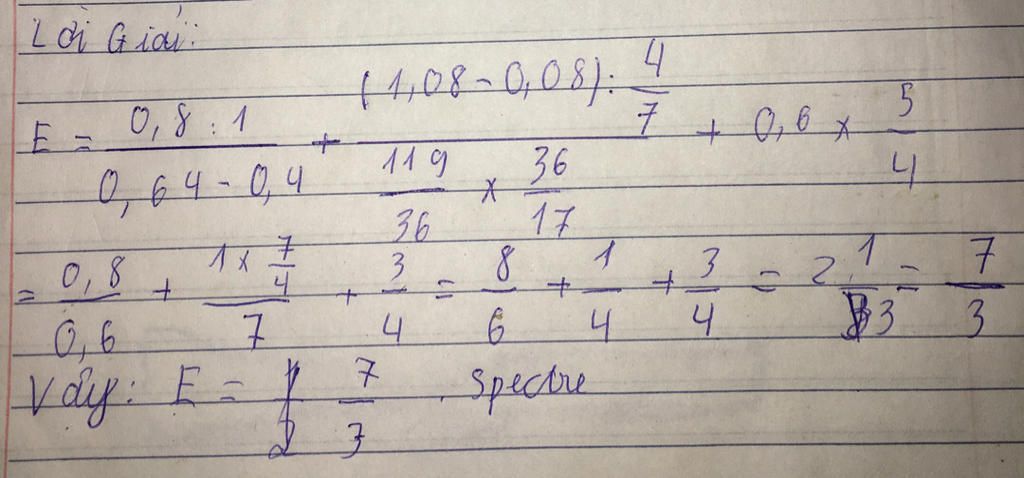 Lời Giải:
E = \frac{0,8 : 1}{0,64 - 0,4} + \frac{(1,08 - 0,08) : \frac{4}{7}}{\frac{119}{36} \times \frac{36}{17}} + 0,6 \times \frac{5}{4}
= \frac{0,8}{0,6} + \frac{1 \times \frac{7}{4}}{7} + \frac{3}{4} = \frac{8}{6} + \frac{1}{4} + \frac{3}{4} = 2\frac{1}{3} = \frac{7}{3}
Vậy: E = \frac{7}{3} . Spectre